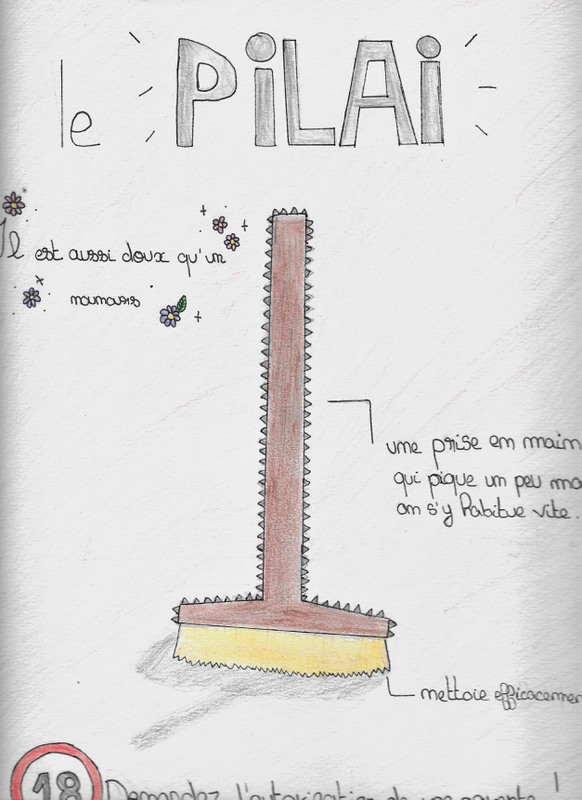 le PiLAi
Il est aussi doux qu'un
nounours
une prise en main
qui pique un peu ma
on s'y habitue vite.
nettoie efficacemen
18 Demandez l'autorisation de vos parents !